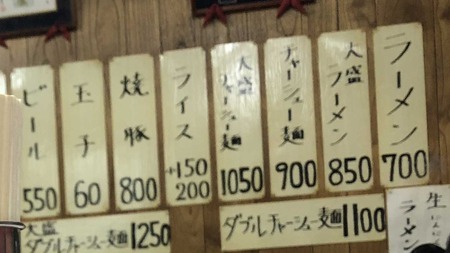 ラーメン 700
大盛ラーメン 850
チャーシュー麺 900
大盛チャーシュー麺 1050
ライス +150 200
焼豚 800
玉子 60
ビール 550
ダブルチャーシュー麺 1100
大盛ダブルチャーシュー麺 1250
生にんにく
ラーメン